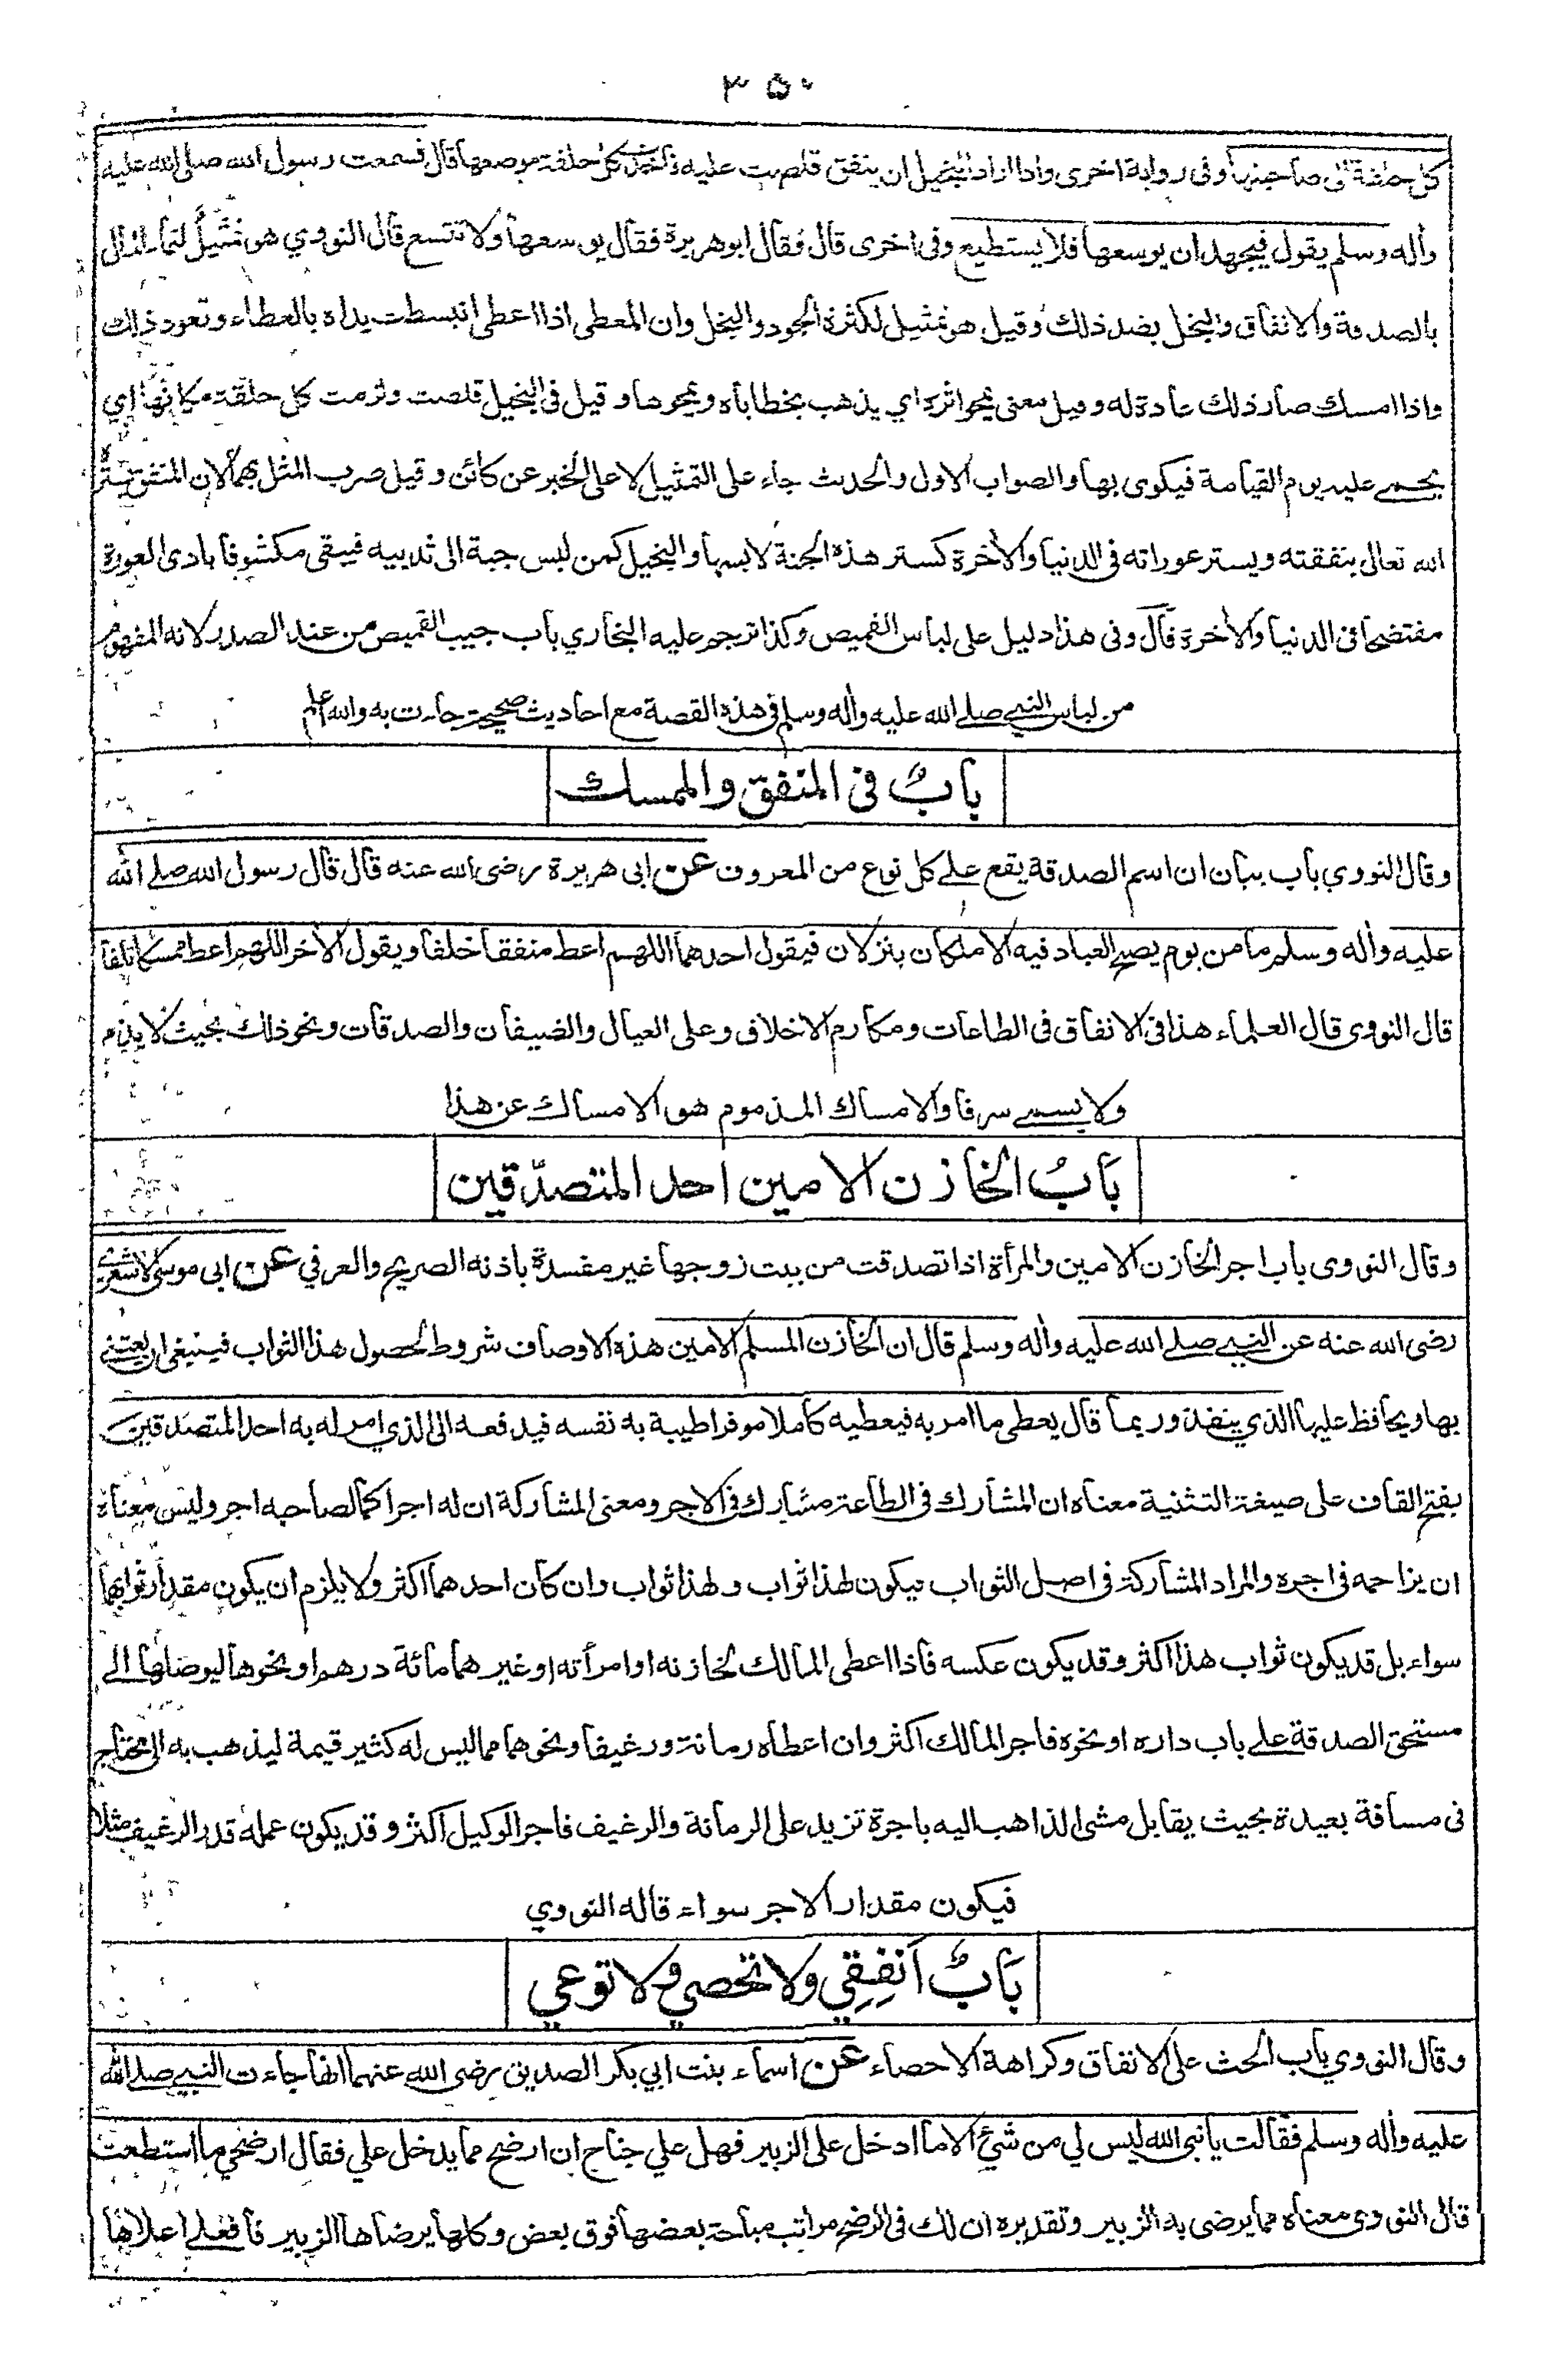 ٣٥٠
كل حلقة الى صاحبتها وفى رواية اخرى واذا اراد البخيل ان ينفق قلصت عليه واخذت كل حلقة موضعها قال فسمعت رسول الله صلى الله عليه
وأله وسلم يقول فيجهد ان يوسعها فلا يستطيع وفى اخرى قال فقال ابو هريرة فقال يوسعها ولا تتسع قال النووي هو تمثيل لنماء المال
بالصدقة والانفاق والبخل بضد ذلك وقيل هو تمثيل لكثرة الجود والبخل وان المعطى اذا اعطى انبسطت يداه بالعطاء وتعود ذلك
واذا امسك صار ذلك عادة له وقيل معنى يمحو اثره اي يذهب بخطاياه ويمحوها وقيل فى البخيل قلصت ولزمت كل حلقة مكانها اي
يحمى عليه يوم القيامة فيكوى بها والصواب الاول والحدث جاء على التمثيل لا على الخبر عن كائن وقيل ضرب المثل بهما لان المنفق يستره
الله تعالى بنفقته ويستر عوراته فى الدنيا والأخرة كستر هذه الجنة لابسها والبخيل كمن لبس جبة الى ثدييه فيبقى مكشوفا بادى العورة
مفتضحا فى الدنيا والأخرة قال وفى هذا دليل على لباس القميص وكذا ترجم عليه البخاري باب جيب القميص من عند الصدر لانه المفهوم
من لباس النبي صلى الله عليه وأله وسلم فى هذه القصة مع احاديث صحيحة جاءت به والله اعلم
بابٌ فى المنفق والممسك
وقال النووي باب بيان ان اسم الصدقة يقع على كل نوع من المعروف عن ابى هريرة رضى الله عنه قال قال رسول الله صلى الله
عليه وأله وسلم ما من يوم يصبح العباد فيه الا ملكان ينزلان فيقول احدهما اللهم اعط منفقا خلفا ويقول الأخر اللهم اعط ممسكا تلفا
قال النووى قال العلماء هذا فى الانفاق فى الطاعات ومكارم الاخلاق وعلى العيال والضيفان والصدقات ونحو ذلك بحيث لا يذم
ولا يسمى سرفا والامساك المذموم هو الامساك عن هذا
بَابُ الخازن الامين احد المتصدّقين
وقال النووى باب اجر الخازن الامين والمرأة اذا تصدقت من بيت زوجها غير مفسدة باذنه الصريح والعرفي عن ابى موسى الاشعري
رضى الله عنه عن النبي صلى الله عليه وأله وسلم قال ان الخازن المسلم الامين هذه الاوصاف شروط لحصول هذا الثواب فينبغى ان يعتنى
بها ويحافظ عليها الذي ينفذ وربما قال يعطى ما امر به فيعطيه كاملا موفرا طيبة به نفسه فيدفعه الى الذي امر له به احد المتصدقين
بفتح القاف على صيغة التثنية معناه ان المشارك فى الطاعة مشارك فى الاجر ومعنى المشاركة ان له اجرا كما لصاحبه اجر وليس معناه
ان يزاحمه فى اجره والمراد المشاركة فى اصل الثواب فيكون لهذا ثواب ولهذا ثواب وان كان احدهما اكثر ولا يلزم ان يكون مقدار ثوابهما
سواء بل قد يكون ثواب هذا اكثر وقد يكون عكسه فاذا اعطى المالك لخازنه او امرأته او غيرهما مائة درهم او نحوها ليوصلها الى
مستحق الصدقة على باب داره او نحوه فاجر المالك اكثر وان اعطاه رمانة ورغيفا ونحوهما مما ليس له كثير قيمة ليذهب به الى محتاج
فى مسافة بعيدة بحيث يقابل مشى الذاهب اليه باجرة تزيد على الرمانة والرغيف فاجر الوكيل اكثر وقد يكون عمله قدر الرغيف مثلا
فيكون مقدار الاجر سواء قاله النووي
بَابٌ اَنفِقِي ولا تحصي ولا توعي
وقال النووي باب الحث على الانفاق وكراهة الاحصاء عن اسماء بنت ابي بكر الصديق رضى الله عنهما انها جاءت النبي صلى الله
عليه وأله وسلم فقالت يا نبى الله ليس لي من شئ الا ما ادخل على الزبير فهل علي جناح ان ارضخ مما يدخل علي فقال ارضخي ما استطعت
قال النووى معناه مما يرضى به الزبير وتقديره ان لك فى الرضخ مراتب مباحة بعضها فوق بعض وكلها يرضاها الزبير فافعلى اعلاها